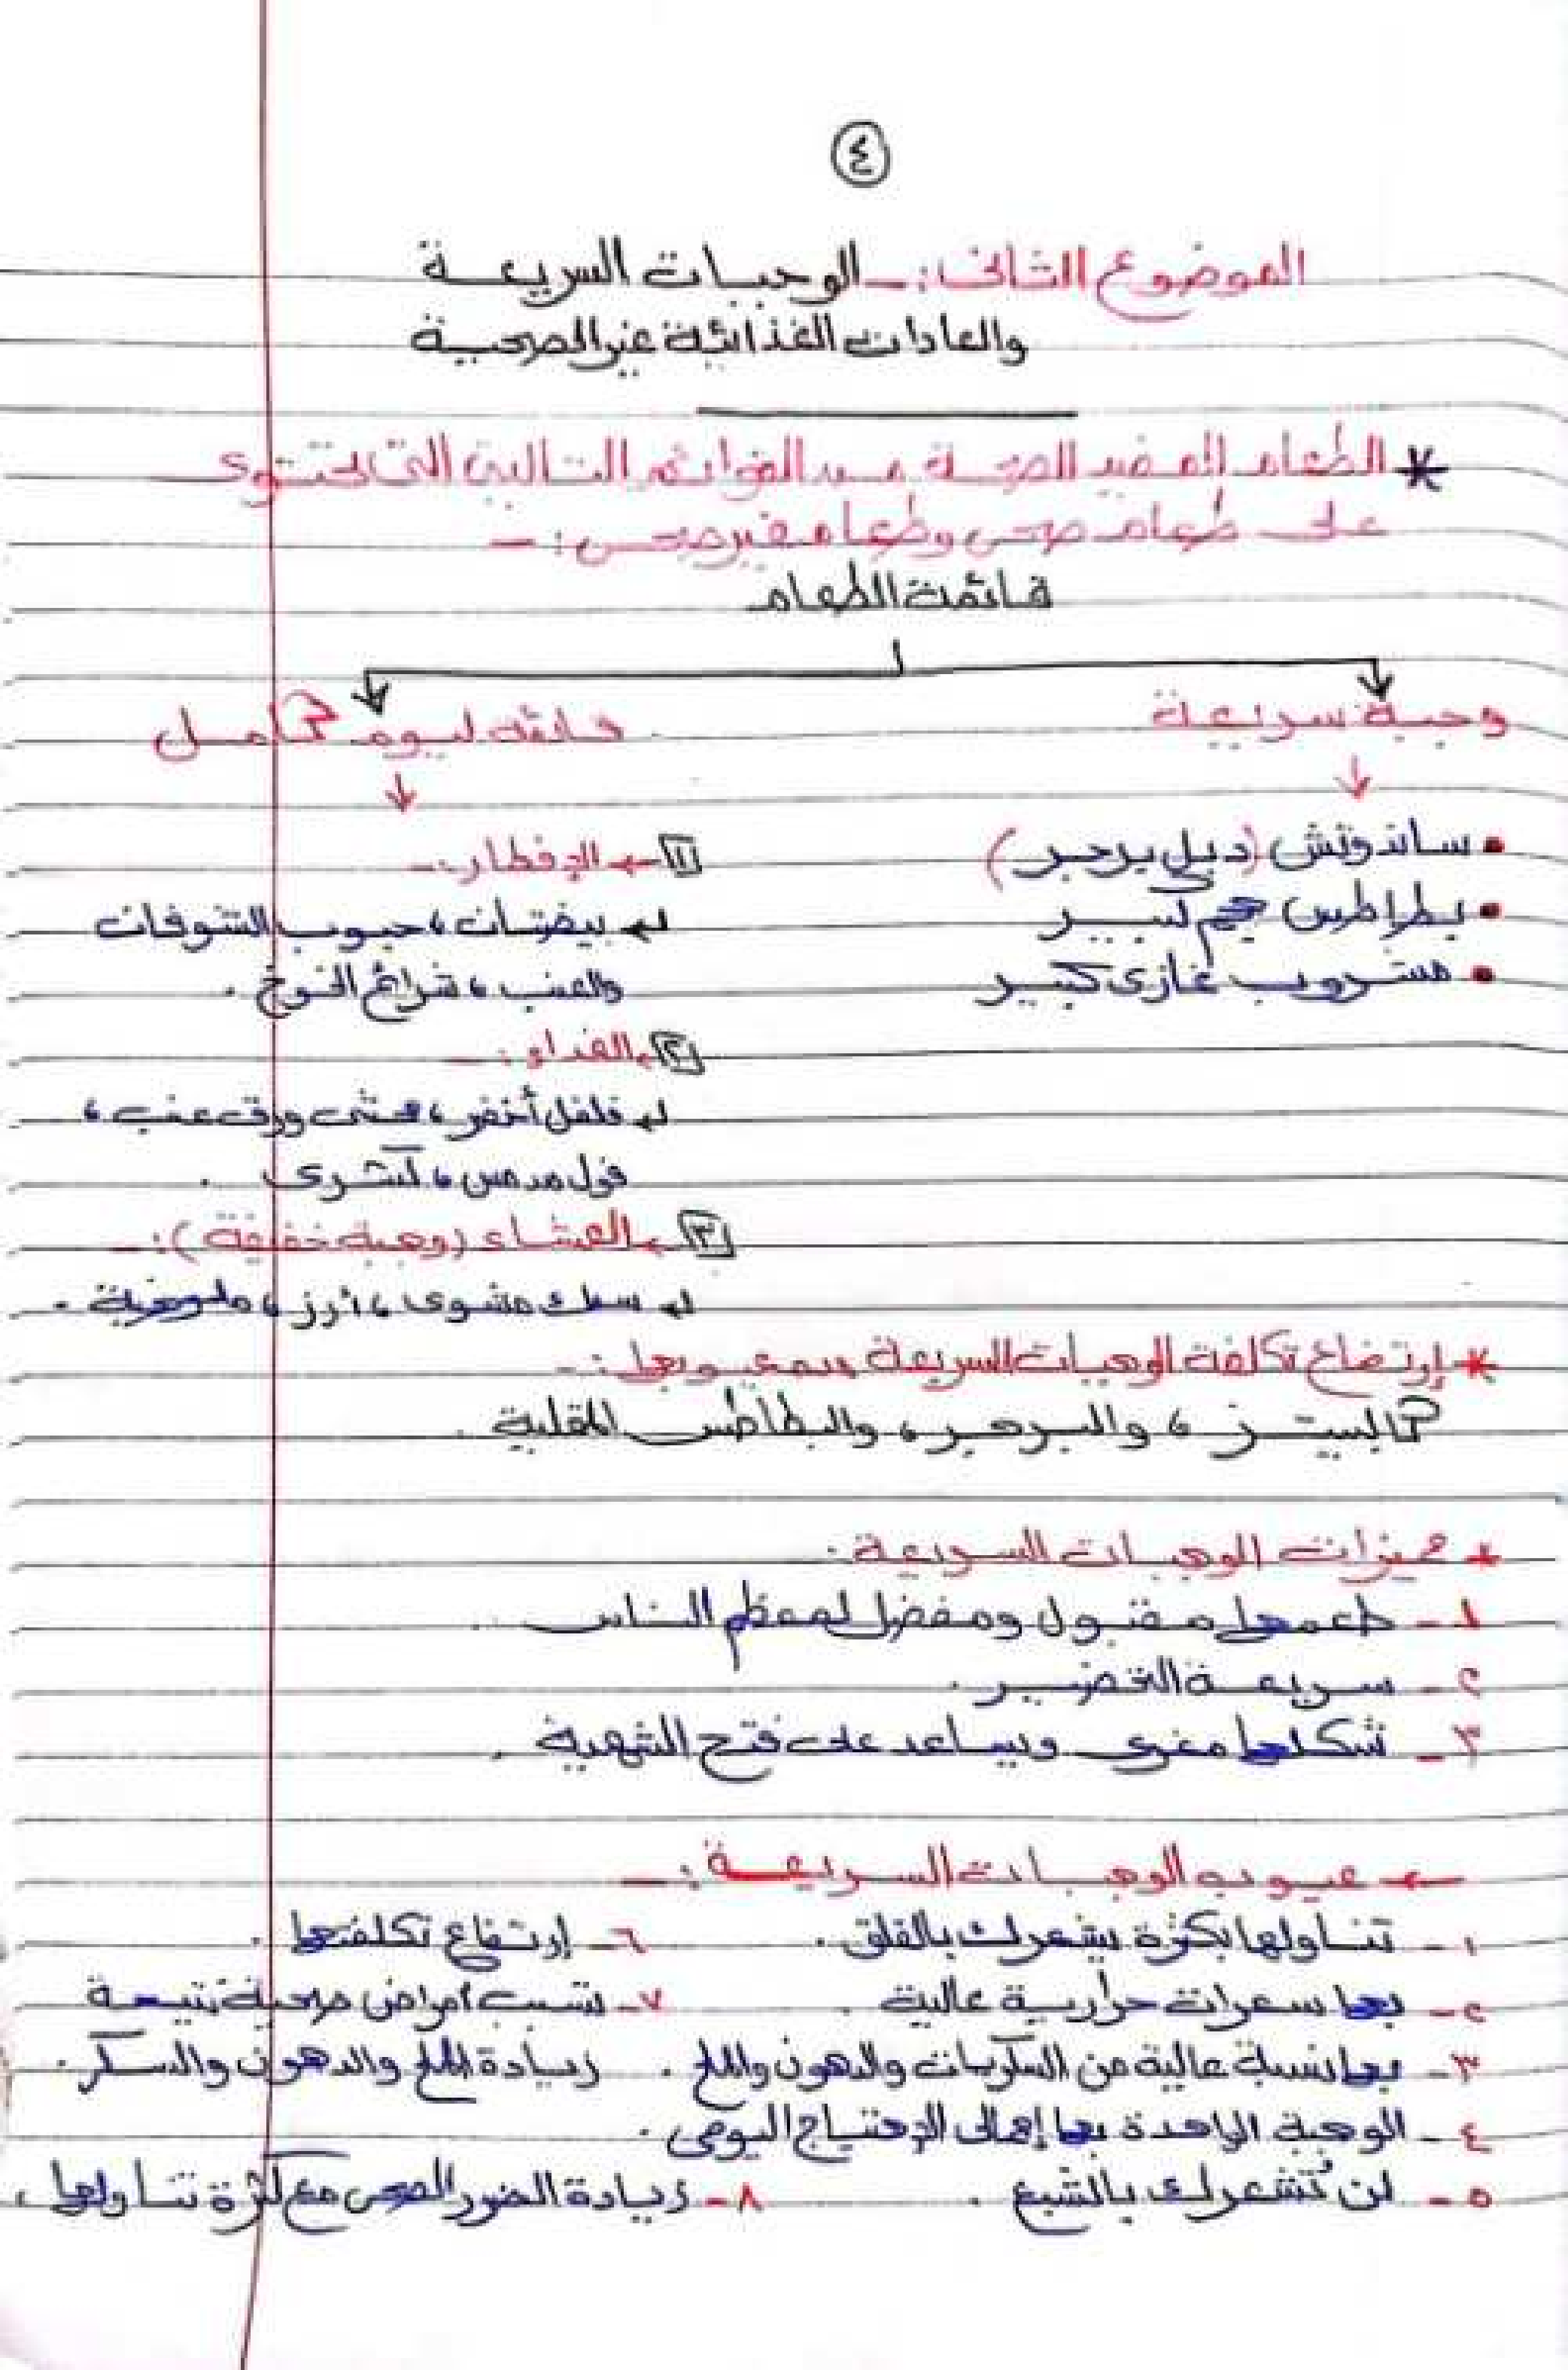 ٤
الموضوع الثاني :- الوجبات السريعة
والعادات الغذائية غير الصحية
* الطعام المفيد للصحة من القوائم التالية التي تحتوى
على طعام صحى وطعام غير صحى :-
قائمة الطعام
وجبة سريعة
قائمة ليوم كامل
• ساندوتش (دبل برجر)
• بطاطس حجم كبير
• مشروب غازى كبير
١ ← الإفطار :-
بيضتان ، حبوب الشوفان
والعنب ، شرائح الخوخ .
٢ ← الغداء :-
فلفل أخضر ، محشى ورق عنب ،
فول مدمس ، كشرى .
٣ ← العشاء (وجبة خفيفة) :-
سمك مشوى ، أرز ، ملوخية .
* إرتفاع تكلفة الوجبات السريعة من عيوبها :-
كالبيتزا ، والبرجر ، والبطاطس المقلية .
* مميزات الوجبات السريعة .
١- طعمها مقبول ومفضل لمعظم الناس .
٢- سريعة التحضير .
٣- شكلها مغرى ويساعد على فتح الشهية .
← عيوب الوجبات السريعة :-
١- تناولها بكثرة يشعرك بالقلق .
٢- بها سعرات حرارية عالية .
٣- بها نسبة عالية من السكريات والدهون والملح .
٤- الوجبة الواحدة بها إجمالى الإحتياج اليومى .
٥- لن تُشعرك بالشبع .
٦- إرتفاع تكلفتها .
٧- تسبب أمراض صحية نتيجة
زيادة الملح والدهون والسكر .
٨- زيادة الضرر الصحى مع كثرة تناولها .